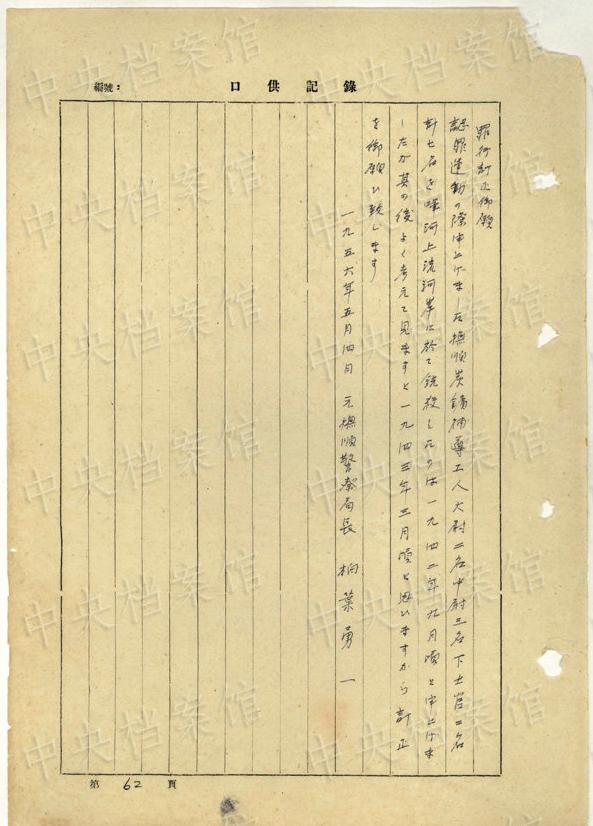 口供記錄
編號：
罪行訂正御願
認罪運動の際申上げました撫順炭鉱輔導工人大尉二名中尉三名下士官二名
計七名を渾河上流河岸に於て銃殺したのは一九四二年九月頃と申上げま
したが其の後よく考えて見ますと一九四三年三月頃と思ひますから訂正
を御願ひ致します
一九五六年五月四日 元撫順警察局長 柏葉勇一
第 62 頁
中央档案馆